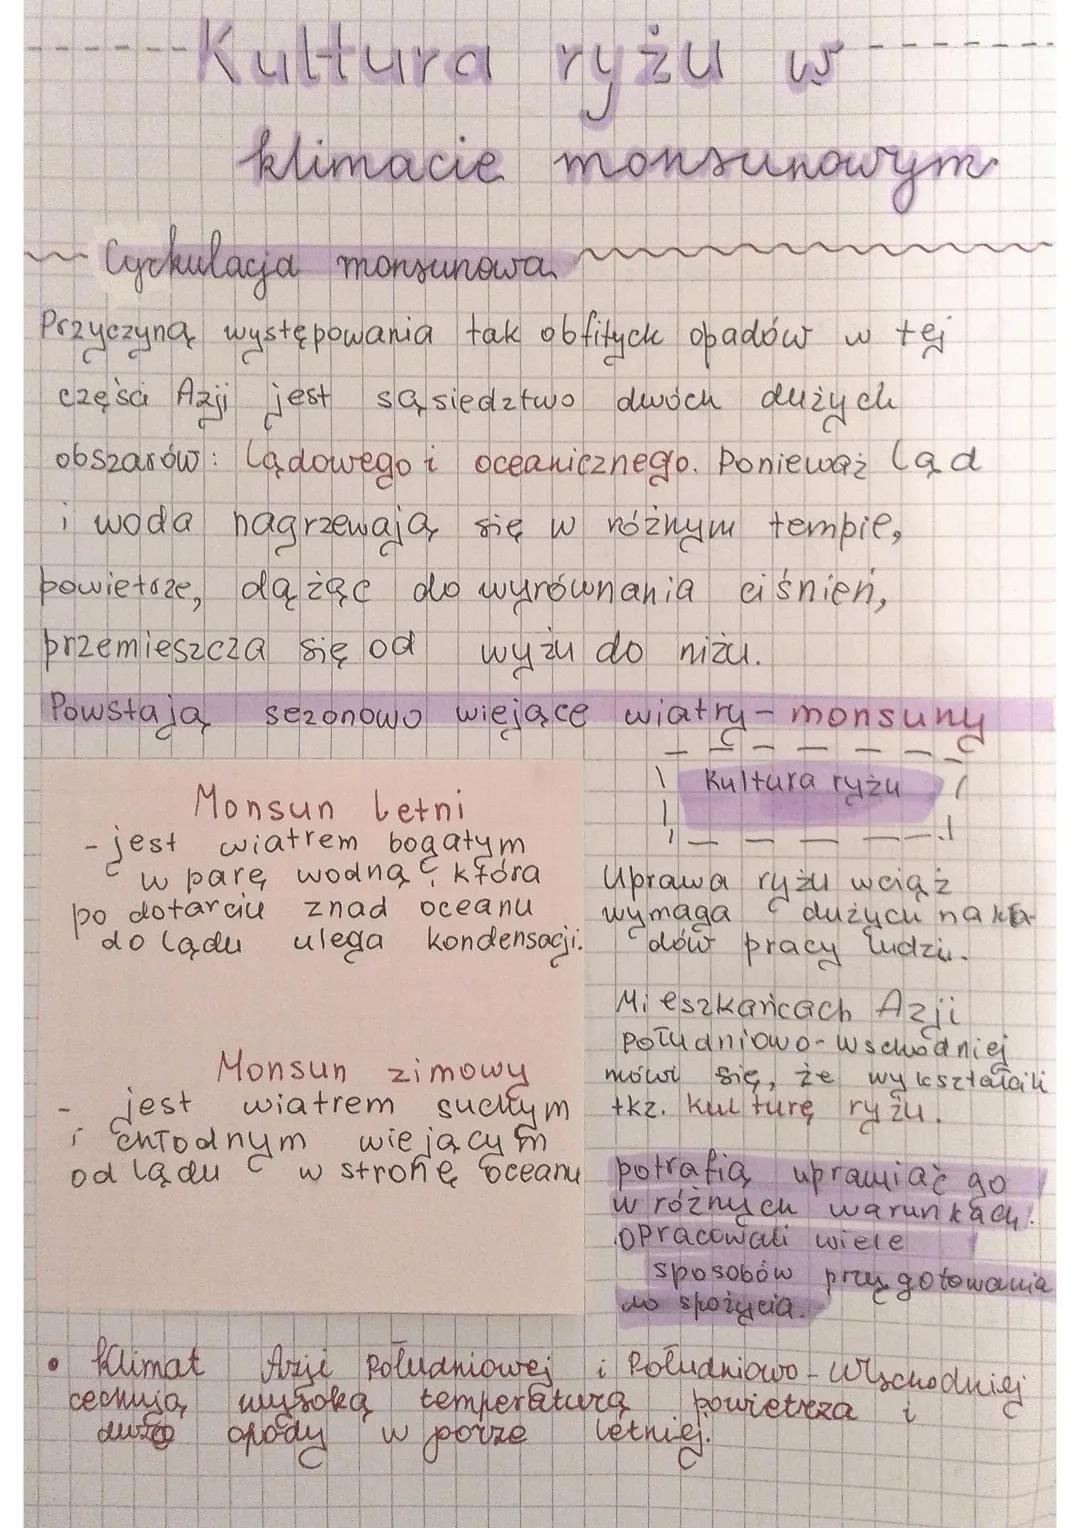 Kultura ryżu w
klimacie monsunowym
Cyrkulacja monsunowa
Przyczyną występowania tak obfitych opadów w tej
części Azji jest sąsiedztwo dwóch dużych
obszarów: lądowego i oceanicznego. Ponieważ ląd
i woda nagrzewają się w różnym tempie,
powietrze, dążąc do wyrównania ciśnień,
przemieszcza się od wyżu do niżu.
Powstają sezonowo wiejące wiatry - monsuny
Monsun letni
- jest wiatrem bogatym
w parę wodną, która
po dotarciu znad oceanu
do lądu ulega kondensacji.
Monsun zimowy
- jest wiatrem suchym
i chłodnym wiejącym
od lądu w stronę oceanu
Kultura ryżu
Uprawa ryżu wciąż
wymaga dużych nakła-
dów pracy ludzi.
Mieszkańcach Azji
południowo-wschodniej
mówi się, że wykształcili
tkz. kulturę ryżu.
potrafią uprawiać go
w różnych warunkach.
opracowali wiele
sposobów przygotowania
do spożycia.
• klimat Azji Południowej i Południowo-Wschodniej
cechują wysoką temperaturą powietrza i
opady w porze letniej.